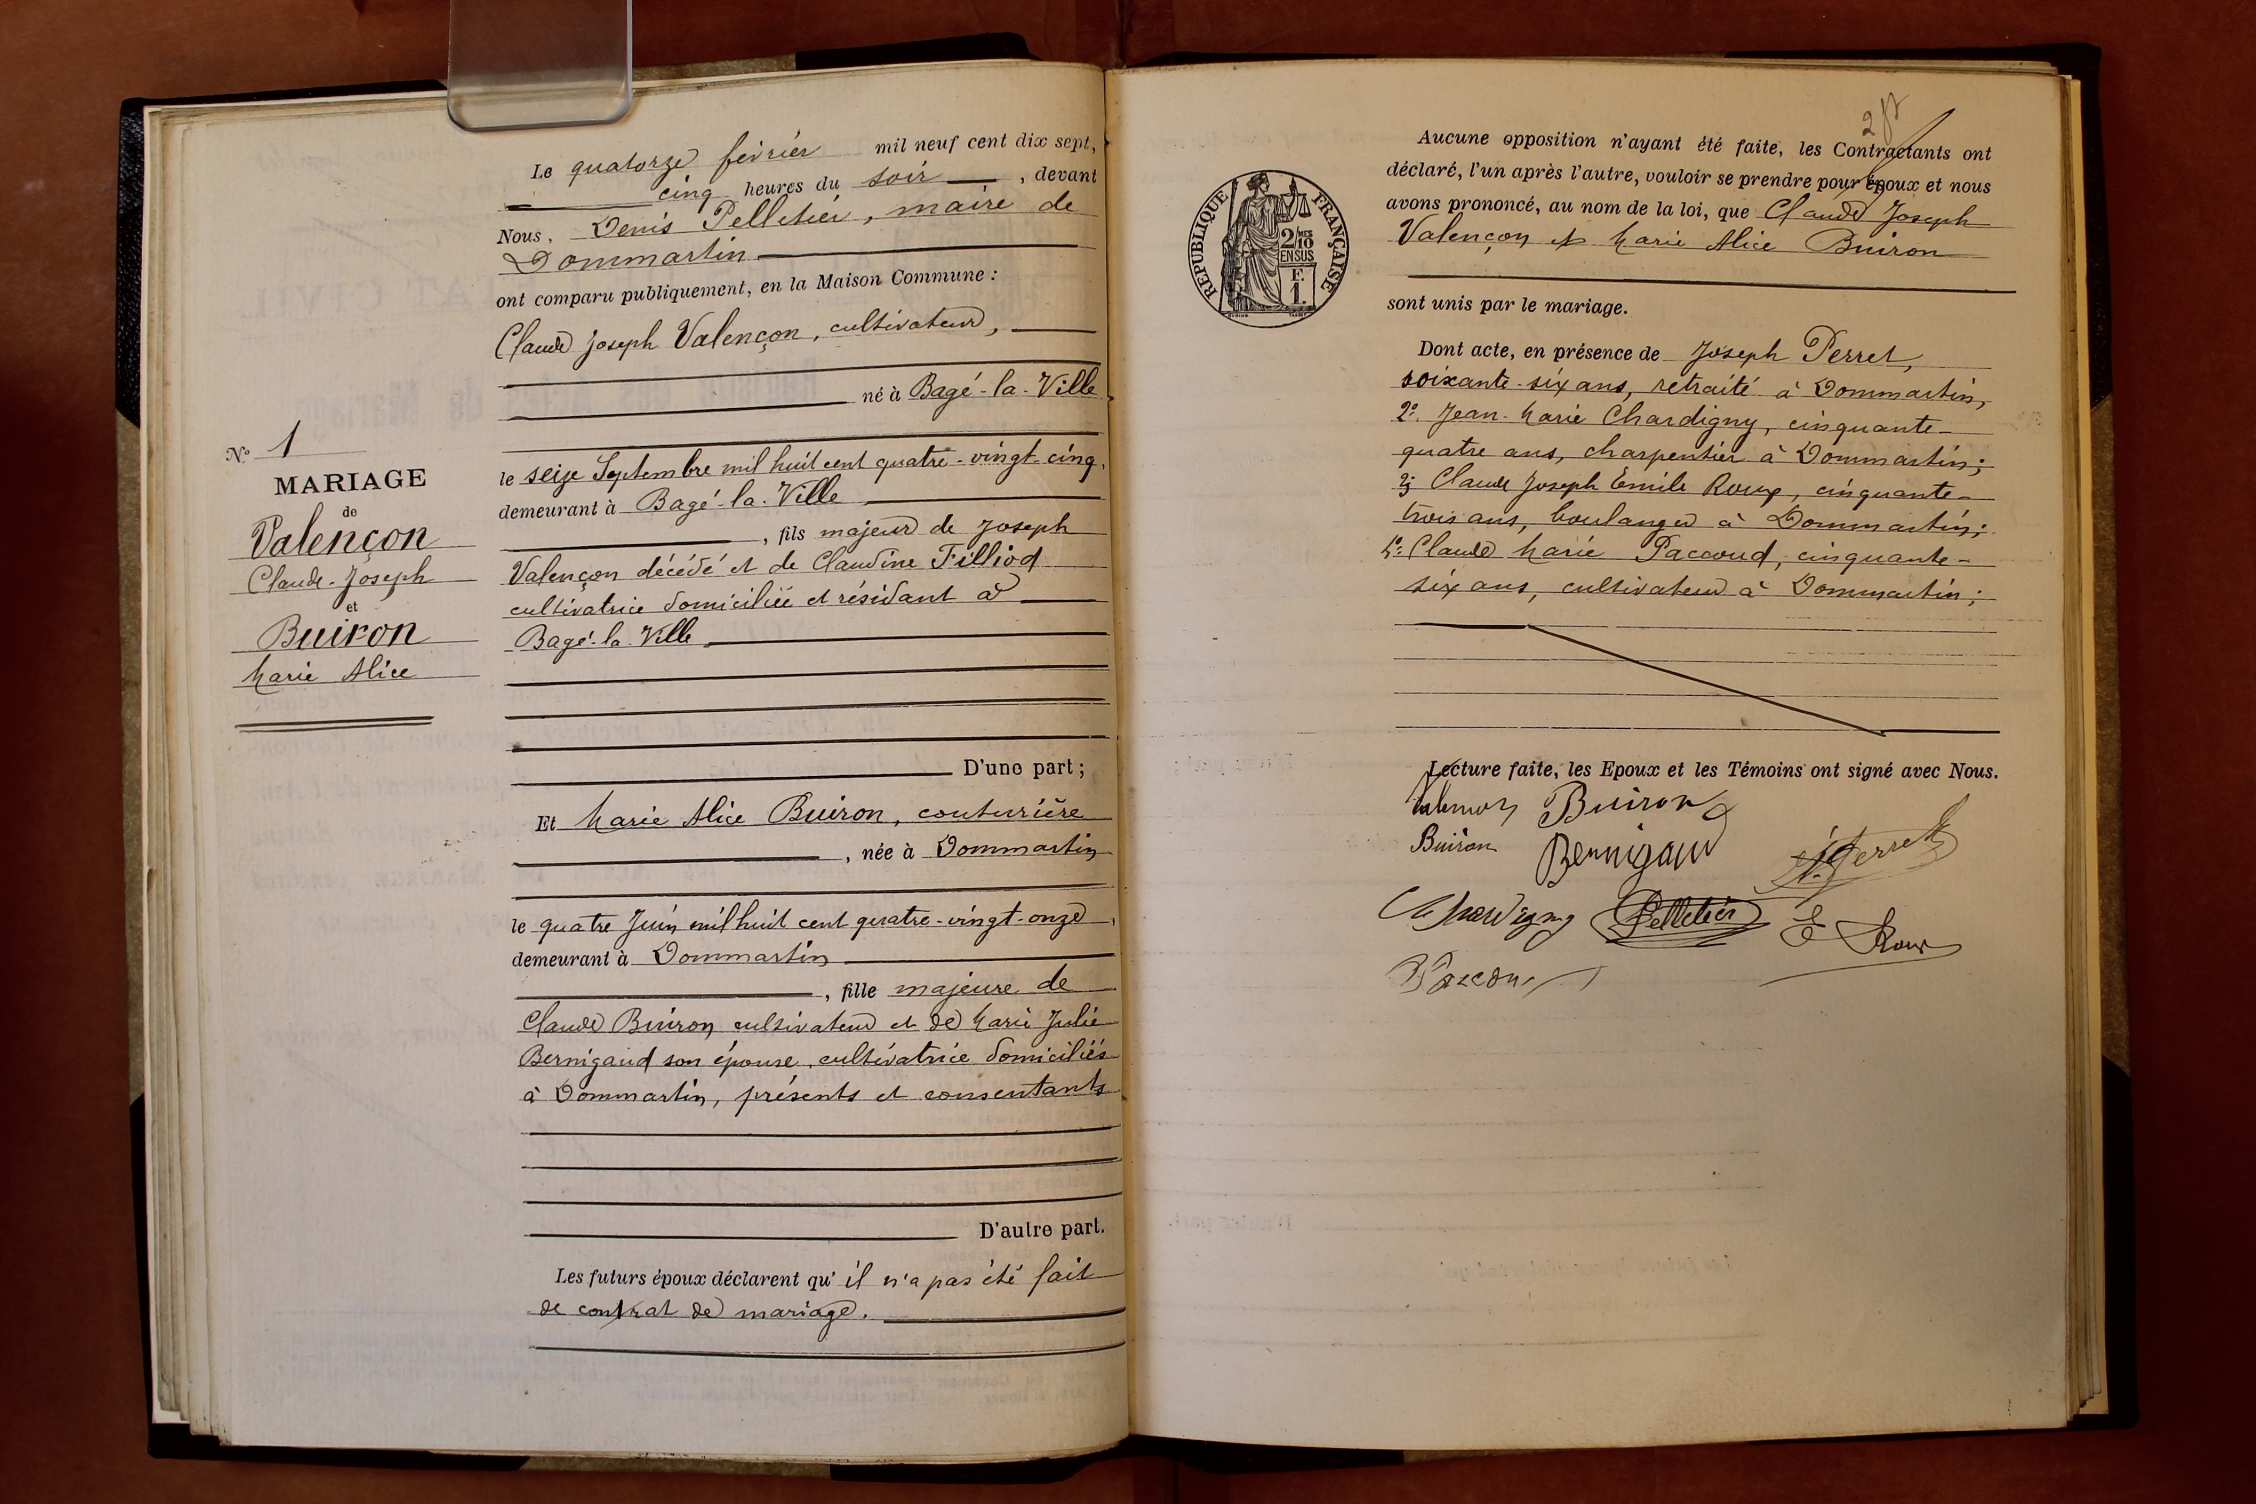 N° 1
MARIAGE
de
Valençon
Claude-Joseph
et
Buiron
Marie Alice
Le quatorze février mil neuf cent dix sept,
cinq heures du soir, devant
Nous, Denis Pelletier, maire de
Dommartin
ont comparu publiquement, en la Maison Commune :
Claude Joseph Valençon, cultivateur,
né à Bagé-la-Ville
le seize Septembre mil huit cent quatre-vingt-cinq,
demeurant à Bagé-la-Ville
, fils majeur de Joseph
Valençon décédé et de Claudine Filliod
cultivatrice domiciliée et résidant à
Bagé-la-Ville
D'une part ;
Et Marie Alice Buiron, couturière
, née à Dommartin
le quatre Juin mil huit cent quatre-vingt-onze,
demeurant à Dommartin
, fille majeure de
Claude Buiron cultivateur et de Marie Julie
Bernigaud son épouse, cultivatrice domiciliés
à Dommartin, présents et consentants
D'autre part.
Les futurs époux déclarent qu'il n'a pas été fait
de contrat de mariage.
2
RÉPUBLIQUE FRANÇAISE
2/10
EN SUS
F.
1.
Aucune opposition n'ayant été faite, les Contractants ont
déclaré, l'un après l'autre, vouloir se prendre pour époux et nous
avons prononcé, au nom de la loi, que Claude Joseph
Valençon et Marie Alice Buiron
sont unis par le mariage.
Dont acte, en présence de Joseph Perret,
soixante-six ans, retraité à Dommartin,
2° Jean-Marie Chardigny, cinquante-
quatre ans, charpentier à Dommartin ;
3° Claude Joseph Emile Roux, cinquante-
trois ans, boulanger à Dommartin ;
4° Claude Marie Paccoud, cinquante-
six ans, cultivateur à Dommartin ;
Lecture faite, les Epoux et les Témoins ont signé avec Nous.
Valençon Buiron
Buiron Bernigaud Perret
Chardigny Pelletier E Roux
Paccoud